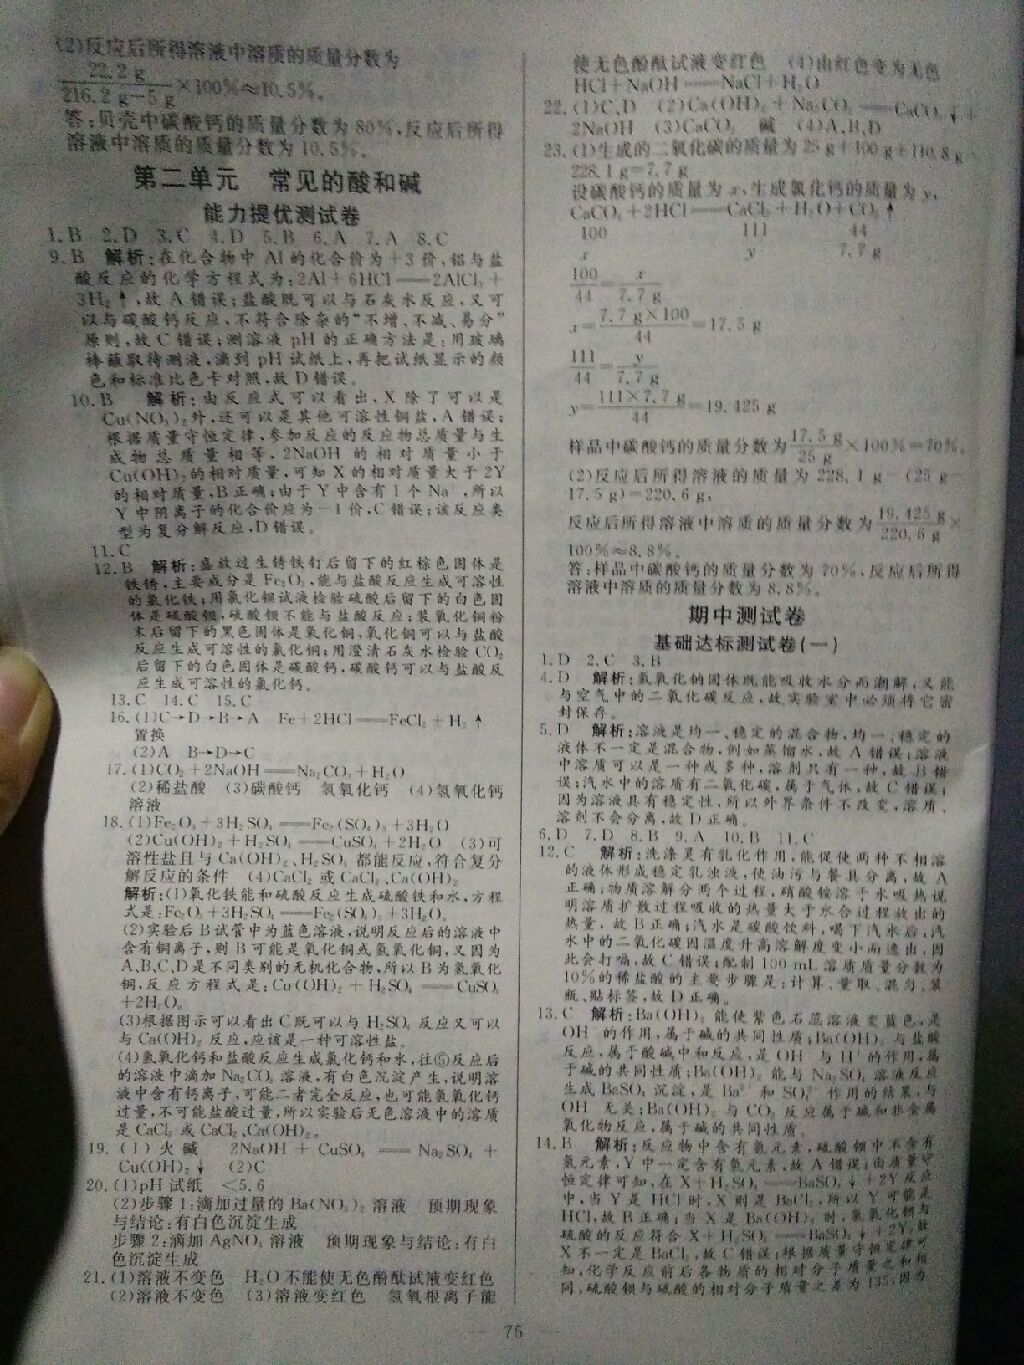 (2)反应后所得溶液中溶质的质量分数为
22.2 g/(216.2 g-5 g)×100%≈10.5%。
答:贝壳中碳酸钙的质量分数为80%,反应后所得
溶液中溶质的质量分数为10.5%。
第二单元 常见的酸和碱
能力提优测试卷
1.B 2.D 3.C 4.D 5.B 6.A 7.A 8.C
9.B 解析:在化合物中 Al 的化合价为+3价,铝与盐
酸反应的化学方程式为:2Al+6HCl══2AlCl₃+
3H₂↑,故A错误;盐酸既可以与石灰水反应,又可
以与碳酸钙反应,不符合除杂的“不增、不减、易分”
原则,故C错误;测溶液pH的正确方法是:用玻璃
棒蘸取待测液,滴到pH试纸上,再把试纸显示的颜
色和标准比色卡对照,故D错误。
10.B 解析:由反应式可以看出,X除了可以是
Cu(NO₃)₂外,还可以是其他可溶性铜盐,A错误;
根据质量守恒定律,参加反应的反应物总质量与生
成物总质量相等,2NaOH的相对质量小于
Cu(OH)₂的相对质量,可知X的相对质量大于2Y
的相对质量,B正确;由于Y中含有1个Na⁺,所以
Y中阴离子的化合价应为-1价,C错误;该反应类
型为复分解反应,D错误。
11.C
12.B 解析:盛放过生锈铁钉后留下的红棕色固体是
铁锈,主要成分是Fe₂O₃,能与盐酸反应生成可溶性
的氯化铁;用氯化钡试液检验硫酸后留下的白色固
体是硫酸钡,硫酸钡不能与盐酸反应;装氧化铜粉
末后留下的黑色固体是氧化铜,氧化铜可以与盐酸
反应生成可溶性的氯化铜;用澄清石灰水检验CO₂
后留下的白色固体是碳酸钙,碳酸钙可以与盐酸反
应生成可溶性的氯化钙。
13.C 14.C 15.C
16.(1)C→D→B→A Fe+2HCl══FeCl₂+H₂↑
置换
(2)A B→D→C
17.(1)CO₂+2NaOH══Na₂CO₃+H₂O
(2)稀盐酸 (3)碳酸钙 氢氧化钙 (4)氢氧化钙
溶液
18.(1)Fe₂O₃+3H₂SO₄══Fe₂(SO₄)₃+3H₂O
(2)Cu(OH)₂+H₂SO₄══CuSO₄+2H₂O (3)可
溶性盐且与Ca(OH)₂、H₂SO₄都能反应,符合复分
解反应的条件 (4)CaCl₂或CaCl₂、Ca(OH)₂
解析:(1)氧化铁能和硫酸反应生成硫酸铁和水,方程
式是:Fe₂O₃+3H₂SO₄══Fe₂(SO₄)₃+3H₂O。
(2)实验后B试管中为蓝色溶液,说明反应后的溶液中
含有铜离子,则B可能是氧化铜或氢氧化铜,又因为
A、B、C、D是不同类别的无机化合物,所以B为氢氧化
铜,反应方程式是:Cu(OH)₂+H₂SO₄══CuSO₄
+2H₂O。
(3)根据图示可以看出C既可以与H₂SO₄反应又可以
与Ca(OH)₂反应,应该是一种可溶性盐。
(4)氢氧化钙和盐酸反应生成氯化钙和水,往⑤反应后
的溶液中滴加Na₂CO₃溶液,有白色沉淀产生,说明溶
液中含有钙离子,可能二者完全反应,也可能氢氧化钙
过量,不可能盐酸过量,所以实验后无色溶液中的溶质
是CaCl₂或CaCl₂、Ca(OH)₂。
19.(1)火碱 2NaOH+CuSO₄══Na₂SO₄+
Cu(OH)₂↓ (2)C
20.(1)pH试纸 <5.6
(2)步骤1:滴加过量的Ba(NO₃)₂溶液 预期现象
与结论:有白色沉淀生成
步骤2:滴加AgNO₃溶液 预期现象与结论:有白
色沉淀生成
21.(1)溶液不变色 H₂O不能使无色酚酞试液变红色
(2)溶液不变色 (3)溶液变红色 氢氧根离子能
使无色酚酞试液变红色 (4)由红色变为无色
HCl+NaOH══NaCl+H₂O
22.(1)C、D (2)Ca(OH)₂+Na₂CO₃══CaCO₃↓+
2NaOH (3)CaCO₃ 碱 (4)A、B、D
23.(1)生成的二氧化碳的质量为25 g+100 g+110.8 g-
228.1 g=7.7 g
设碳酸钙的质量为x,生成氯化钙的质量为y,
CaCO₃+2HCl══CaCl₂+H₂O+CO₂↑
100 111 44
x y 7.7 g
100/44=x/7.7 g
x=7.7 g×100/44=17.5 g
111/44=y/7.7 g
y=111×7.7 g/44=19.425 g
样品中碳酸钙的质量分数为17.5 g/25 g×100%=70%。
(2)反应后所得溶液的质量为228.1 g-(25 g-
17.5 g)=220.6 g,
反应后所得溶液中溶质的质量分数为19.425 g/220.6 g×
100%≈8.8%。
答:样品中碳酸钙的质量分数为70%,反应后所得
溶液中溶质的质量分数为8.8%。
期中测试卷
基础达标测试卷(一)
1.D 2.C 3.B
4.D 解析:氢氧化钠固体既能吸收水分而潮解,又能
与空气中的二氧化碳反应,故实验室中必须将它密
封保存。
5.D 解析:溶液是均一、稳定的混合物,均一、稳定的
液体不一定是混合物,例如蒸馏水,故A错误;溶液
中溶质可以是一种或多种,溶剂只有一种,故B错
误;汽水中的溶质有二氧化碳,属于气体,故C错误;
因为溶液具有稳定性,所以外界条件不改变,溶质、
溶剂不会分离,故D正确。
6.D 7.D 8.B 9.A 10.B 11.C
12.C 解析:洗涤灵有乳化作用,能促使两种不相溶
的液体形成稳定乳浊液,使油污与餐具分离,故A
正确;物质溶解分两个过程,硝酸铵溶于水吸热说
明溶质扩散过程吸收的热量大于水合过程放出的
热量,故B正确;汽水是碳酸饮料,喝下汽水后,汽
水中的二氧化碳因温度升高溶解度变小而逸出,因
此会打嗝,故C错误;配制100 mL溶质质量分数为
10%的稀盐酸的主要步骤是:计算、量取、混匀、装
瓶、贴标签,故D正确。
13.C 解析:Ba(OH)₂能使紫色石蕊溶液变蓝色,是
OH⁻的作用,属于碱的共同性质;Ba(OH)₂与盐酸
反应,属于酸碱中和反应,是OH⁻与H⁺的作用,属
于碱的共同性质;Ba(OH)₂能与Na₂SO₄溶液反应
生成BaSO₄沉淀,是Ba²⁺和SO₄²⁻作用的结果,与
OH⁻无关;Ba(OH)₂与CO₂反应属于碱和非金属
氧化物反应,属于碱的共同性质。
14.B 解析:反应物中含有氢元素,硫酸钡中不含有
氢元素,Y中一定含有氢元素,故A错误;由质量守
恒定律可知,在X+H₂SO₄══BaSO₄↓+2Y反应
中,当Y是HCl时,X则是BaCl₂,所以Y可能是
HCl,故B正确;当X是Ba(OH)₂时,氢氧化钡与
硫酸的反应符合X+H₂SO₄══BaSO₄↓+2Y,故
X不一定是BaCl₂,故C错误;根据质量守恒定律可
知,化学反应前后各物质的相对分子质量之和相
同,硫酸钡与硫酸的相对分子质量之差为135;因为
75